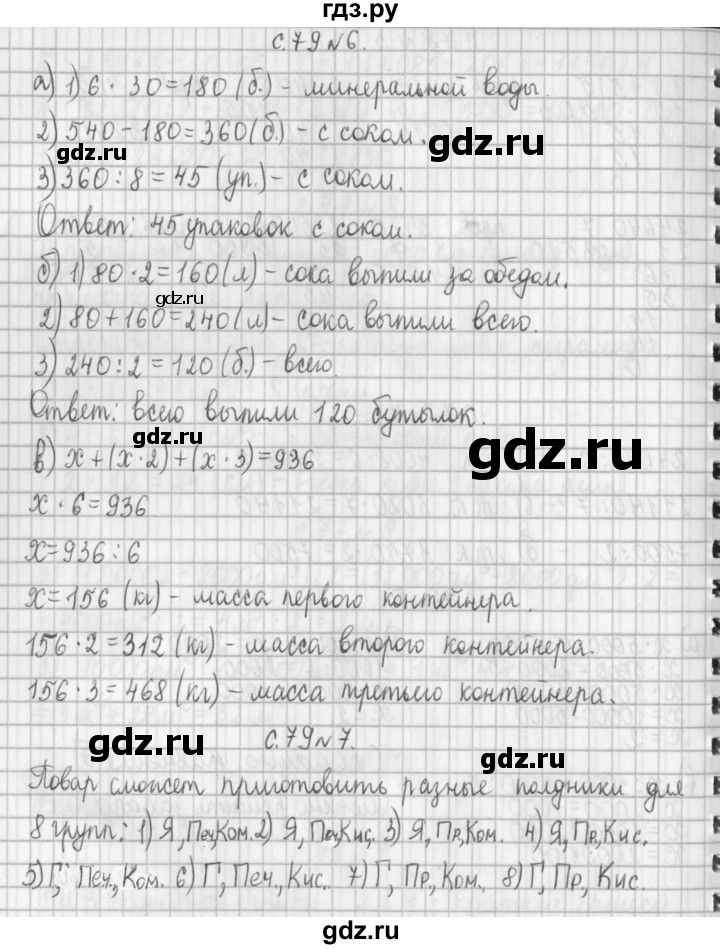 гдз.ру
с.79 №6.
а) 1) 6 · 30 = 180 (б.) - минеральной воды.
2) 540 - 180 = 360 (б.) - с соком.
gdz.ru
gdz.ru
3) 360 : 8 = 45 (уп.) - с соком.
Ответ: 45 упаковок с соком.
б) 1) 80 · 2 = 160 (л) - сока выпили за обедом.
gdz.ru
2) 80 + 160 = 240 (л) - сока выпили всего.
3) 240 : 2 = 120 (б.) - всего.
Ответ: всего выпили 120 бутылок.
gdz.ru
gdz.ru
в) x + (x · 2) + (x · 3) = 936
x · 6 = 936
x = 936 : 6
x = 156 (кг) - масса первого контейнера.
gdz.ru
156 · 2 = 312 (кг) - масса второго контейнера.
156 · 3 = 468 (кг) - масса третьего контейнера.
gdz.ru
с.79 №7.
gdz.ru
Повар сможет приготовить разные полдники для
8 групп: 1) Я, Печ, Ком. 2) Я, Печ, Кис. 3) Я, Пр, Ком. 4) Я, Пр, Кис.
5) Г, Печ., Ком. 6) Г, Печ., Кис. 7) Г, Пр., Ком., 8) Г, Пр, Кис.
gdz.ru
gdz.ru